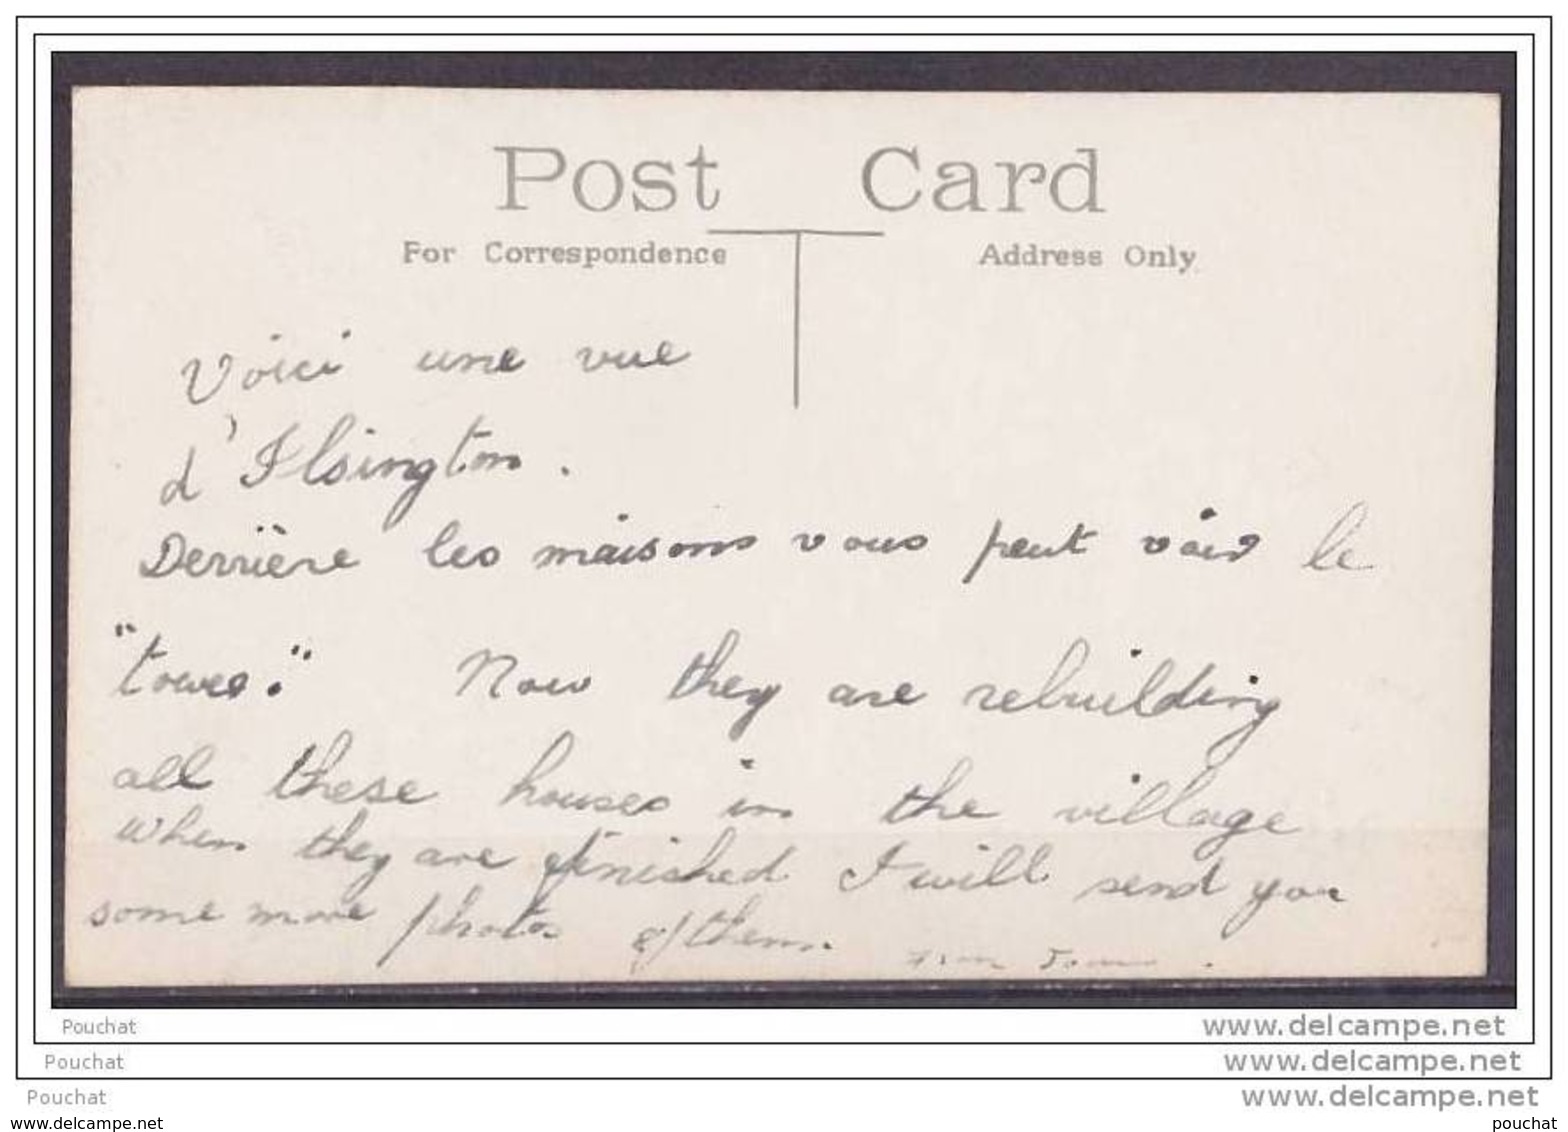 Post Card
For Correspondence
Address Only
Voici une vue
d'Ilsington.
Derrière les maisons vous peut voir le
"tower." Now they are rebuilding
all these houses in the village
when they are finished I will send you
some more photos of them.
Pouchat
www.delcampe.net
Pouchat
www.delcampe.net
Pouchat
www.delcampe.net
www.delcampe.com
pouchat